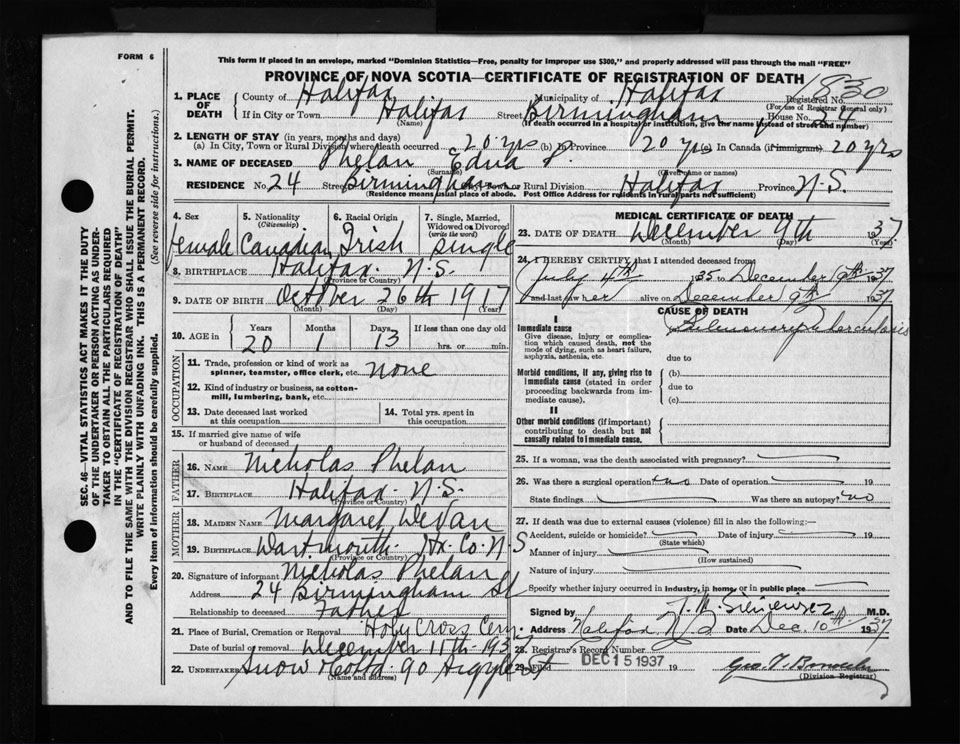 FORM 6
This form if placed in an envelope, marked "Dominion Statistics—Free, penalty for improper use $300," and properly addressed will pass through the mail "FREE"
PROVINCE OF NOVA SCOTIA—CERTIFICATE OF REGISTRATION OF DEATH
1830
Registered No.
(For use of Registrar General only)
1. PLACE OF DEATH
County of Halifax Municipality of Halifax
If in City or Town Halifax Street Birmingham House No. 24
(Name) (If death occurred in a hospital or institution, give the name instead of street and number)
2. LENGTH OF STAY (in years, months and days)
(a) In City, Town or Rural Division where death occurred 20 yrs (b) in Province 20 yrs (c) In Canada (if immigrant) 20 yrs
3. NAME OF DECEASED Phelan Edna P.
(Surname) (Given name or names)
RESIDENCE No. 24 Street Birmingham City, Town or Rural Division Halifax Province N.S.
(Residence means usual place of abode. Post Office Address for residents in rural parts not sufficient)
4. Sex
female
5. Nationality (Citizenship)
Canadian
6. Racial Origin
Irish
7. Single, Married, Widowed or Divorced (write the word)
single
8. BIRTHPLACE Halifax. N.S.
(Province or Country)
9. DATE OF BIRTH October 26th 1917
(Month) (Day) (Year)
10. AGE in Years Months Days If less than one day old
20 1 13 hrs. or min.
OCCUPATION
11. Trade, profession or kind of work as spinner, teamster, office clerk, etc. none
12. Kind of industry or business, as cotton-mill, lumbering, bank, etc.
13. Date deceased last worked at this occupation
14. Total yrs. spent in this occupation
15. If married give name of wife or husband of deceased
FATHER
16. NAME Nicholas Phelan
17. BIRTHPLACE Halifax. N.S.
(Province or Country)
MOTHER
18. MAIDEN NAME Margaret
19. BIRTHPLACE Dartmouth Hx. Co. N.S
(Province or Country)
20. Signature of informant Nicholas Phelan
Address 24 Birmingham St
Relationship to deceased Father
21. Place of Burial, Cremation or Removal Holy Cross Cem
Date of burial or removal December 11th 1937
22. UNDERTAKER Snow & Co Ltd. 90 Argyle St
(Name and address)
MEDICAL CERTIFICATE OF DEATH
23. DATE OF DEATH December 9th 1937
(Month) (Day) (Year)
24. I HEREBY CERTIFY that I attended deceased from
July 4th 1935 to December 9th 1937
and last saw her alive on December 9th 1937
CAUSE OF DEATH
I
Immediate cause
Give disease, injury or complication which caused death, not the mode of dying, such as heart failure, asphyxia, asthenia, etc.
Pulmonary Tuberculosis
due to
Morbid conditions, if any, giving rise to immediate cause (stated in order proceeding backwards from immediate cause).
(b)
due to
(c)
II
Other morbid conditions (if important) contributing to death but not causally related to immediate cause.
25. If a woman, was the death associated with pregnancy?
26. Was there a surgical operation no Date of operation 19
State findings Was there an autopsy? no
27. If death was due to external causes (violence) fill in also the following:—
Accident, suicide or homicide? Date of injury 19
(State which)
Manner of injury
(How sustained)
Nature of injury
Specify whether injury occurred in industry, in home, or in public place
Signed by M.D.
Address Halifax N.S. Date Dec. 10th 1937
28. Registrar's Record Number
29. Filed DEC 15 1937 19
(Division Registrar)
SEC. 46—VITAL STATISTICS ACT MAKES IT THE DUTY
OF THE UNDERTAKER OR PERSON ACTING AS UNDER-
TAKER TO OBTAIN ALL THE PARTICULARS REQUIRED
IN THE "CERTIFICATE OF REGISTRATION OF DEATH"
AND TO FILE THE SAME WITH THE DIVISION REGISTRAR WHO SHALL ISSUE THE BURIAL PERMIT.
WRITE PLAINLY WITH UNFADING INK. THIS IS A PERMANENT RECORD.
Every item of information should be carefully supplied. (See reverse side for instructions.)